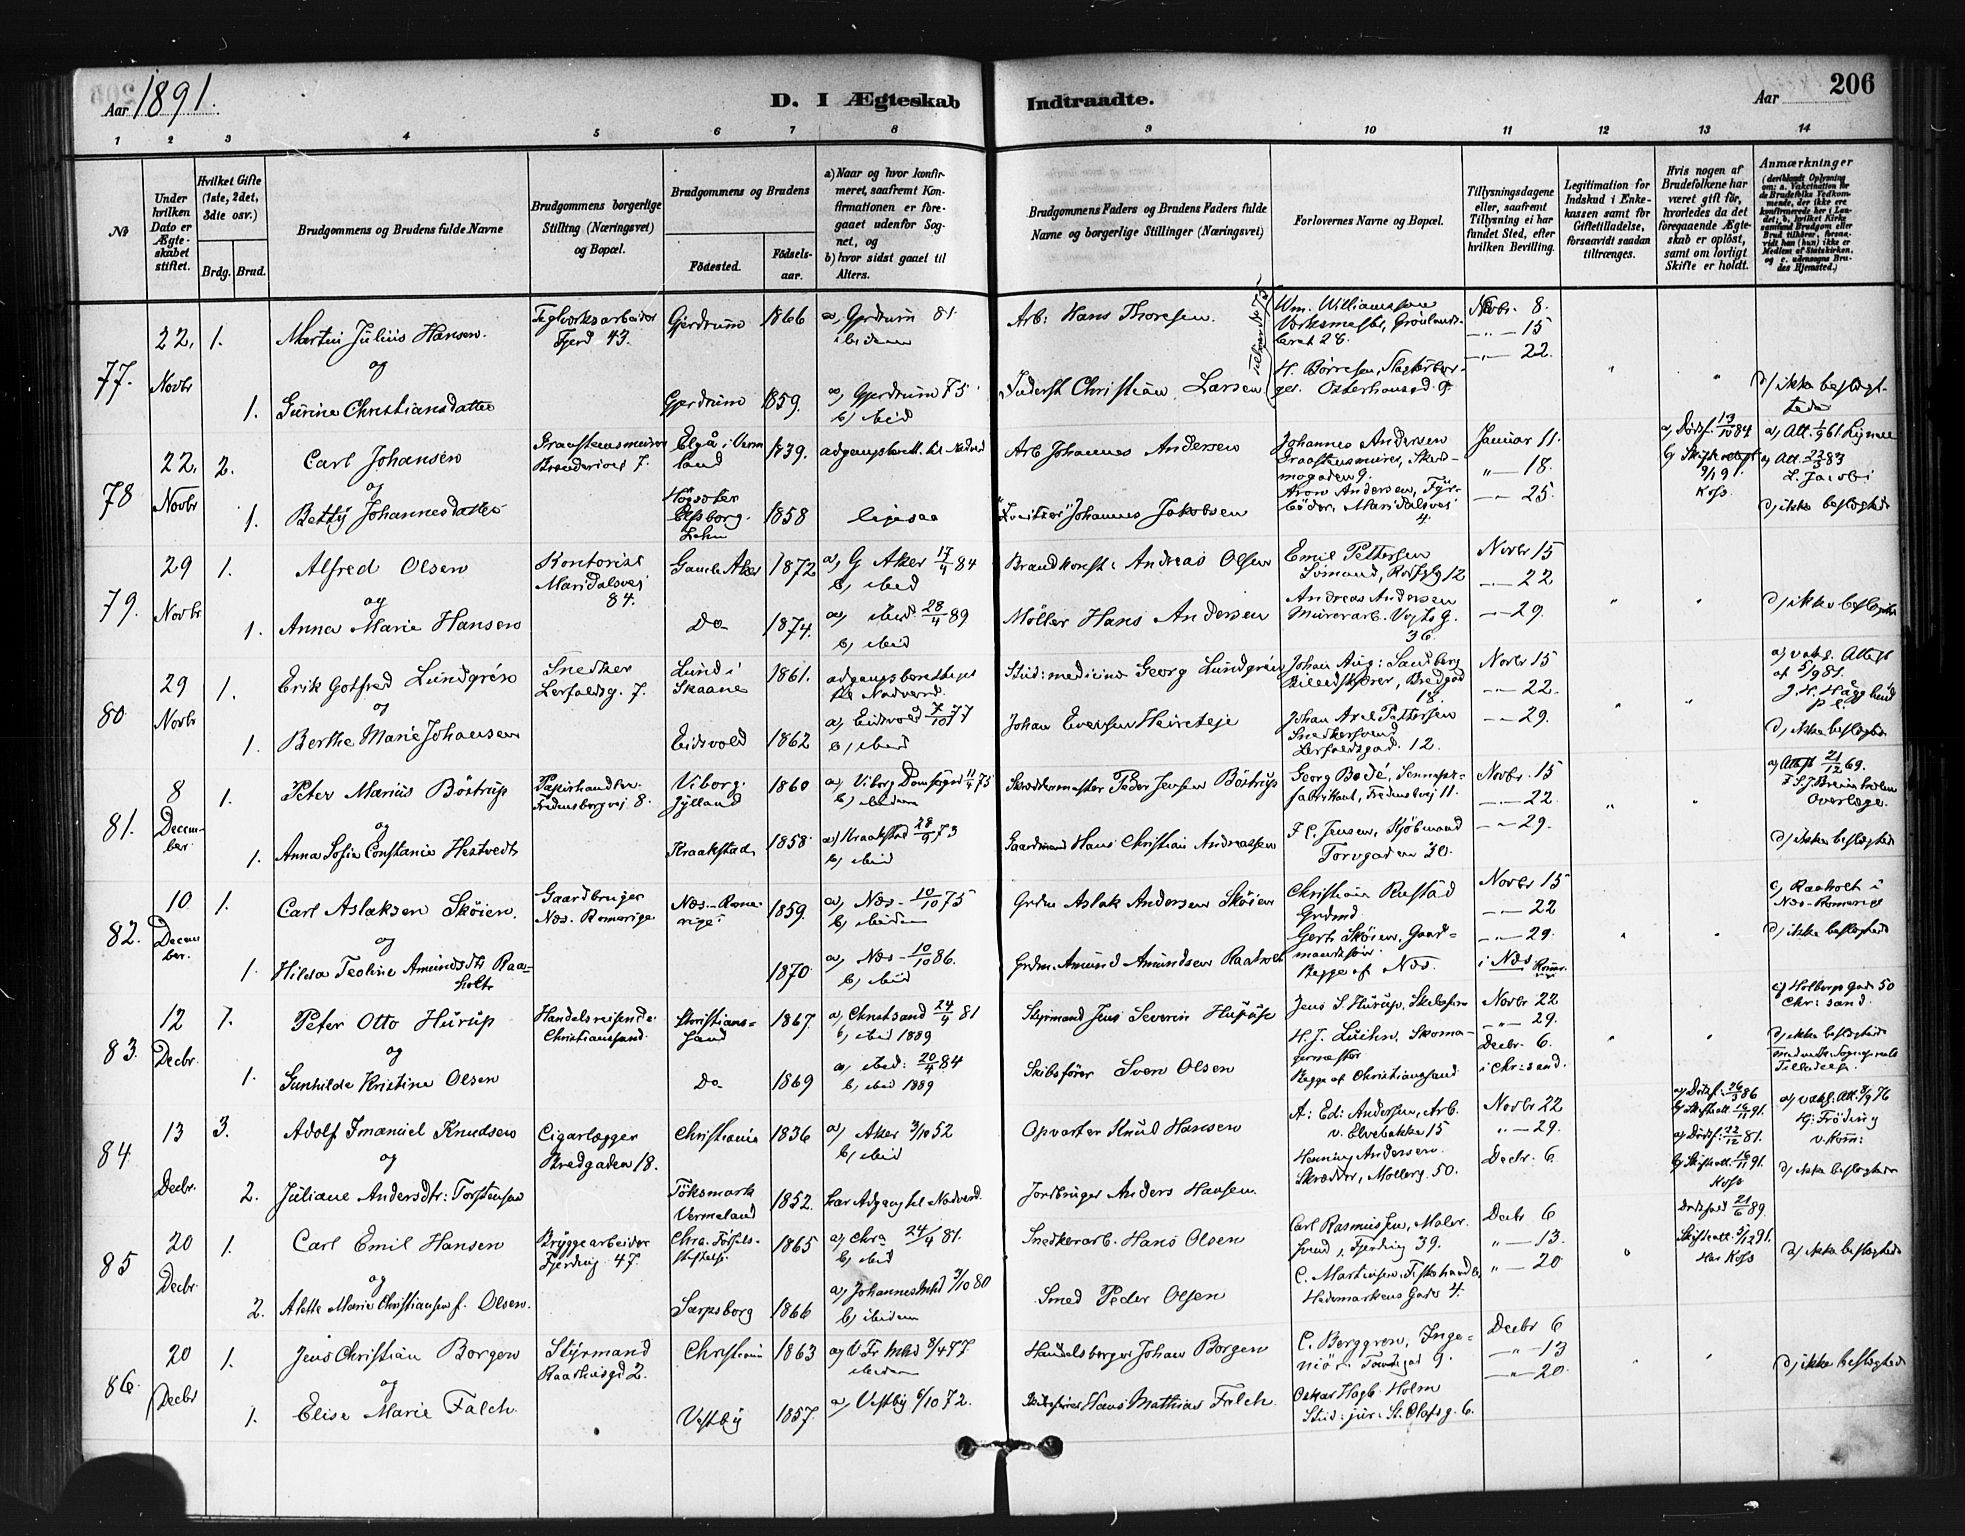 Aar 1891. D. I Ægteskab Indtraadte. Aar 206
1 2 3 4 5 6 7 8 9 10 11 12 13 14
No
Under hvilken Dato er Ægteskabet stiftet.
Hvilket Gifte (1ste, 2det, 3die osv.)
Brdg. Brud.
Brudgommens og Brudens fulde Navne
Brudgommens borgerlige Stilling (Næringsvei) og Bopæl.
Brudgommens og Brudens
Födested. Födselsaar.
a) Naar og hvor konfirmeret, saafremt Konfirmationen er foregaaet udenfor Sognet, og
b) hvor sidst gaaet til Alters.
Brudgommens Faders og Brudens Faders fulde Navne og borgerlige Stillinger (Næringsvei)
Forlovernes Navne og Bopæl.
Tillysningsdagene eller, saafremt Tillysning ei har fundet Sted, efter hvilken Bevilling.
Legitimation for Indskud i Enkekassen samt for Giftetilladelse, forsaavidt saadan tiltrænges.
Hvis nogen af Brudefolkene har været gift för, hvorledes da det foregaaende Ægteskab er oplöst, samt om lovligt Skifte er holdt.
Anmærkninger
77. 22. Novbr
1. Martin Julius Hansen. Teglværksarbeider Fjerd 43. Gjerdrum 1866 a, Gjerdrum 81. ibidem Arb: Hans Thoresen. Wm. Williamsson Værksmester, Grönlandsleret 28. Novbr. 8. 15 22.
og
1. Gurine Christiansdatter Gjerdrum 1859. a) Gjerdrum 75 b) ibid Inderst Christian Larsen H. Börresen, Osterhausgd. 9 d) ikke beslægtede
78 22. Novbr
2. Carl Johansen Graastensmurer 7. Elgå i Vermland 1839. Arb Johannes Andersen Johannes Andersen Graastensmurer, 9. Januar 11. 18. 25.
og
1. Betty Johannesdatter Elfsborg Lehn 1858 ligesaa Johannes Jakobsen Aron Andersen, Fyrböder, Maridalsvei 4. d) ikke beslægtede
79. 29 Novbr
1. Alfred Olsen Kontorist Maridalsvei 84. Gamle Aker 1872 a, G Aker 17/4 84 b, ibid Brandkonst: Andreas Olsen Emil Pettersen Sömand, 12 Novbr 15 22
og
1. Anna Marie Hansen Do 1874. a, ibid. 28/4 89 b, ibid Möller Hans Andersen Andreas Andersen Murerarb. Vogts g. 36. 29. d) ikke beslægtede
80 29 Novbr
1. Erik Gotfred Lundgrén Snedker Lerfaldsg. 7. Lund i Skaane 1861. Stud: medicin Georg Lundgrén Johan Aug: Sandberg Bredgad 18. Novbr 15 22.
og
1. Berthe Marie Johansen Eidsvold 1862 a, Eidsvold 7/10 77 b, ibid Johan Evensen Johan Axel Pettersen Snedkersvend Lerfaldsgad. 12. 29. d, ikke beslægtede
81. 8 December
1. Peter Marius Böstrup Papirhandler Fredensborgvej 8. Viborg. Jylland 1860 a) Viborg Domsogn 11/4 75 b) ibidem Skræddermester Peder Jensen Böstrup Georg Bodé, Sennepsfabrikant, 11. Novbr. 15 22. a) Attest 21/12 69. Overlæge.
og
1. Anna Sofie Constance Hestvedt Kraakstad 1858 a) Kraakstad 28/9 73 b) ibid Gaardmand Hans Christian Andreassen F. C. Jensen, Kjöbmand Torvgaden 20. 29. d) ikke beslægtede
82. 10 December
1. Carl Aslaksen Sköien. Gaardbruger Næs. Romerige Næs. Romerige 1859 a, Næs - 10/10 75 b, ibidem Grdm Aslak Andersen Sköien Christian Rustad Grdmd. Novbr 15 22 c) Raaholt i Næs-Romerige
og
1. Hilda Teoline Amundsdtr Raaholt 1870 a, Næs - 10/10 86. b, ibid Grdm. Amund Amundsen Raaholt Gert Sköien, Begge af Næs. 29. i Næs Romr. d) ikke beslægtede
83. 12 Decbr.
1. Peter Otto Hurup Handelsreisende Christianssand Christianssand 1867 a, Christsand 24/4 81 b, ibid 1889 Styrmand Jens Severin Hurup Jens S. Hurup, H. J. Skomagermester Begge af Christianssand Novbr 22 29. Decbr. 6. i Chr:sand. c) Holbergs Gade 50 Chr: sand.
og
1. Gunhilde Kristine Olsen Do 1869 a, ibid: 20/4 84 b, ibid 1889 Skibsförer Sven Olsen d) ikke beslægtede
84. 13 Decbr.
3. Adolf Imanuel Knudsen Cigarlægger Bredgaden 18. Christiania 1836 a) Aker 3/10 52 b, ibid Opvarter Knud Hansen A: Ed: Andersen, Arb. v. Elvebakken 15 Novbr 22 29. a) vaks. Att. 8/9 76
og
2. Juliane Andersdtr: Torstensen Töksmark Vermeland 1852. har Adgang til Nadverd. Jordbruger Anders Hansen. Henning Andersen. Skrædder, Mollerg. 50. Decbr. 6 d, ikke beslægtede
85 20 Decbr.
1. Carl Emil Hansen Bryggearbeider Fjerding. 47. Chra. Fødselsstiftelse 1865 a, Chra 24/4 81. b, ibid Snedkerarb. Hans Olsen Carl Rasmussen, Malersvend, Fjerding 39. Decbr 6 13. 20 d) ikke beslægtede
og
2. Alette Marie Christiansen f. Olsen. Sarpsborg 1866 a, Johannes Mhd 3/10 80 b, ibidem Smed Peder Olsen C. Martinsen, Hedemarkens Gade 4.
86. 20 Decbr
1. Jens Christian Borgen Styrmand Raadhusgd 2. Christiania 1863 a) V Fr Mhd 8/4 77 ibidem Handelsborger Johan Borgen C. Berggren, Ingeniör. 9. Decbr 6 13 20. d) ikke beslægtede
og
1. Elise Marie Falch. Vestby 1857. a, Vestby 6/10 72. Skibsförer Hans Mathias Falch. Oskar Hagb. Holm Stud: jur: St. Olafsg. 6.